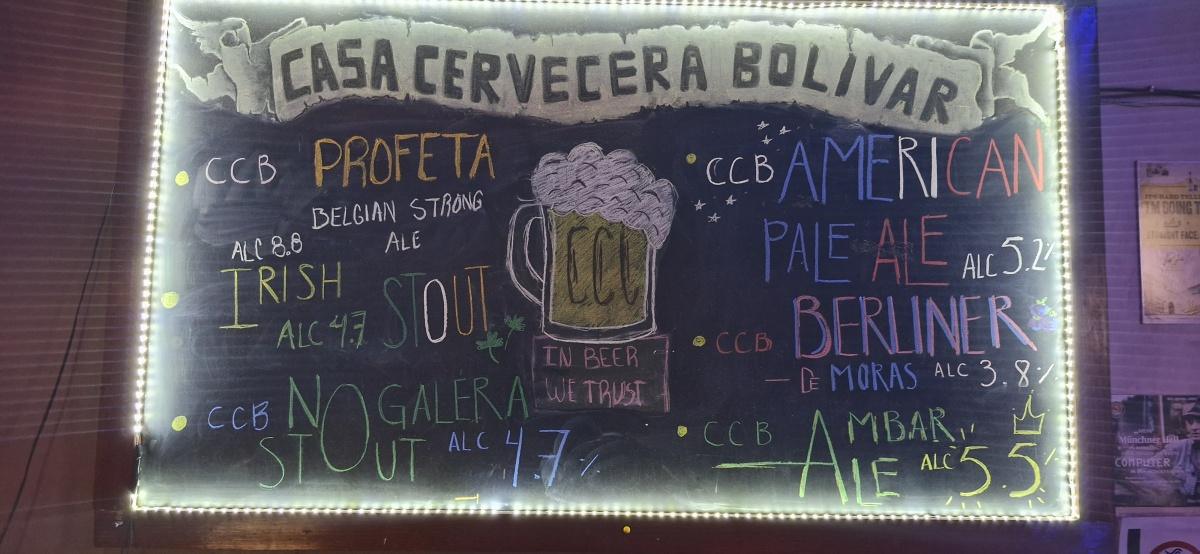 CASA CERVECERA BOLIVAR
CCB PROFETA
BELGIAN STRONG
ALE
ALC 8.8
IRISH
STOUT
ALC 4.7
CCB NOGALERA
STOUT
ALC 4.7%
IN BEER
WE TRUST
CCB AMERICAN
PALE ALE ALC 5.2%
CCB BERLINER
DE MORAS ALC 3.8%
CCB AMBAR
ALE ALC 5.5%
I'M DOING
STRAIGHT FACE
Münchner Hell
COMPUTER